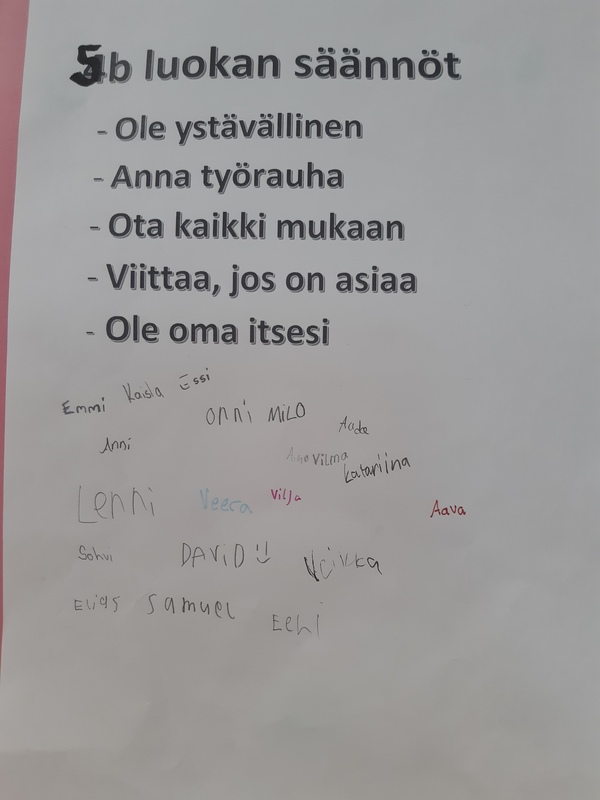 5b luokan säännöt
- Ole ystävällinen
- Anna työrauha
- Ota kaikki mukaan
- Viittaa, jos on asiaa
- Ole oma itsesi
Emmi Kaisla Essi
Onni MiLO
Aada
Anni
Aino Vilma
Katariina
Lenni Veera Vilja
Aava
Sohvi DAViD :)
Veikka
ELiaS Samuel
Eeli